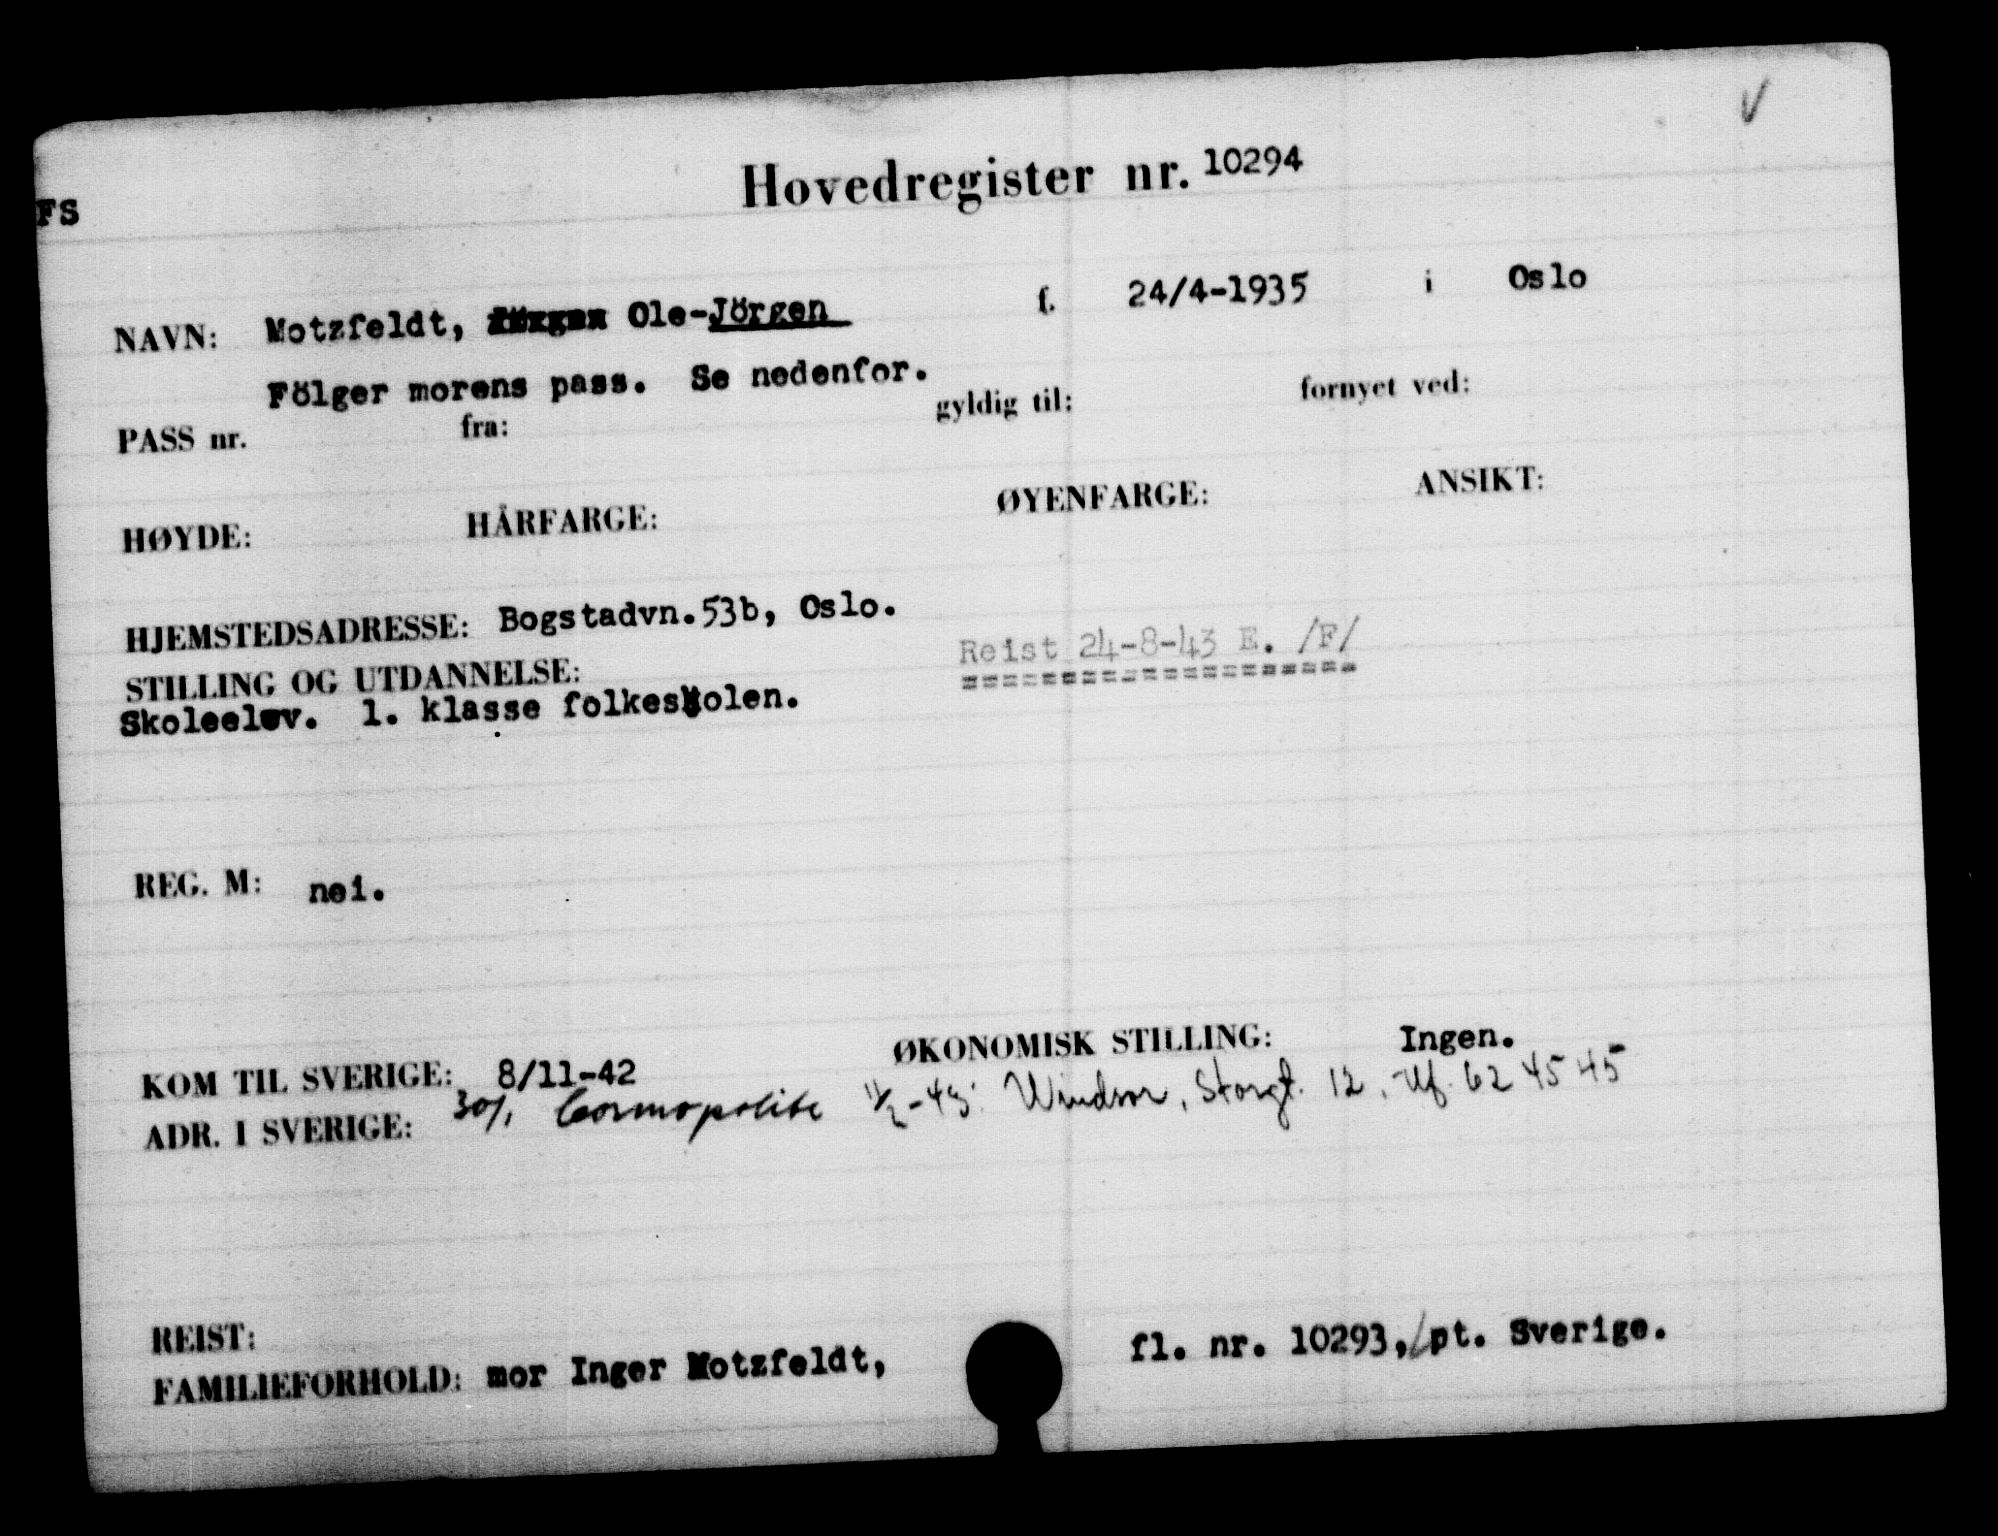 Hovedregister nr. 10294
FS
NAVN: Motzfeldt, Ole-Jörgen f. 24/4-1935 i Oslo
Fölger morens pass. Se nedenfor.
PASS nr. fra: gyldig til: fornyet ved:
HØYDE: HÅRFARGE: ØYENFARGE: ANSIKT:
HJEMSTEDSADRESSE: Bogstadvn.53b, Oslo.
Reist 24-8-43 E. /F/
===================
STILLING OG UTDANNELSE:
Skoleelev. 1. klasse folkeskolen.
REG. M: nei.
KOM TIL SVERIGE: 8/11-42 ØKONOMISK STILLING: Ingen.
ADR. I SVERIGE: 30/1 Cosmopolite 11/2-43: Windsor, Storgt. 12, 62 45 45
REIST:
FAMILIEFORHOLD: mor Inger Motzfeldt, fl. nr. 10293,/pt. Sverige.